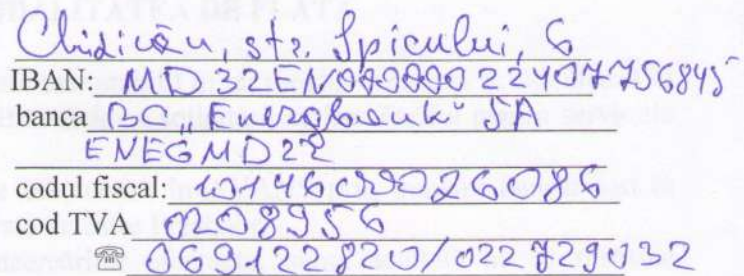 Chișinău, str. Spicului, 6
IBAN: MD32EN000000222407756845
banca BC „Energbank" SA
ENEGMD22
codul fiscal: 1014600026086
cod TVA 0208956
☎ 069122820/022729032